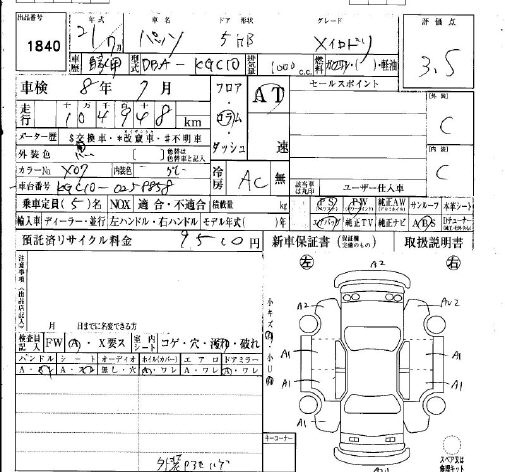 出品番号 年式 車名 ドア 形状 グレード 評価点
1840 21/7月 パッソ 5 HB X イロドリ 3.5
車歴 型式 DBA-KGC10 排気量 1000 c.c. 燃料 ガソリン・( )・軽油
車検 8年7月 フロア セールスポイント
走行 104948 km コラム AT 外装 C
メーター歴 $交換車・*改竄車・#不明車 ダッシュ 速
外装色 黒 [ ] 色替は色替車と記入 内装 C
カラーNo X07 内装色 冷房 AC 無
車台番号 KGC10-0259858 該当車は丸印 ユーザー仕入車
乗車定員(5)名 NOX 適合・不適合 積載量 kg PS PW 純正AW サンルーフ 本革シート
輸入車 ディーラー・並行 左ハンドル・右ハンドル モデル年式( )年 エアバッグ 純正TV 純正ナビ ABS
預託済リサイクル料金 9510円 新車保証書 取扱説明書
注意事項(出品店記入) 左 A2 右
A2 AU2
小キズ 小U
A1 A1
月 日までに名変できる方
検査員記入 FW A・X要ス 室内シート コゲ・穴・破れ
ハンドル シート オーディオ ホイル(カバー) エアロ ドアミラー
A・スレ A・スレ 無し・穴 A・ワレ A・ワレ A・ワレ
A1 A1
A1 A2
キーコーナー
スペア又は修理キット